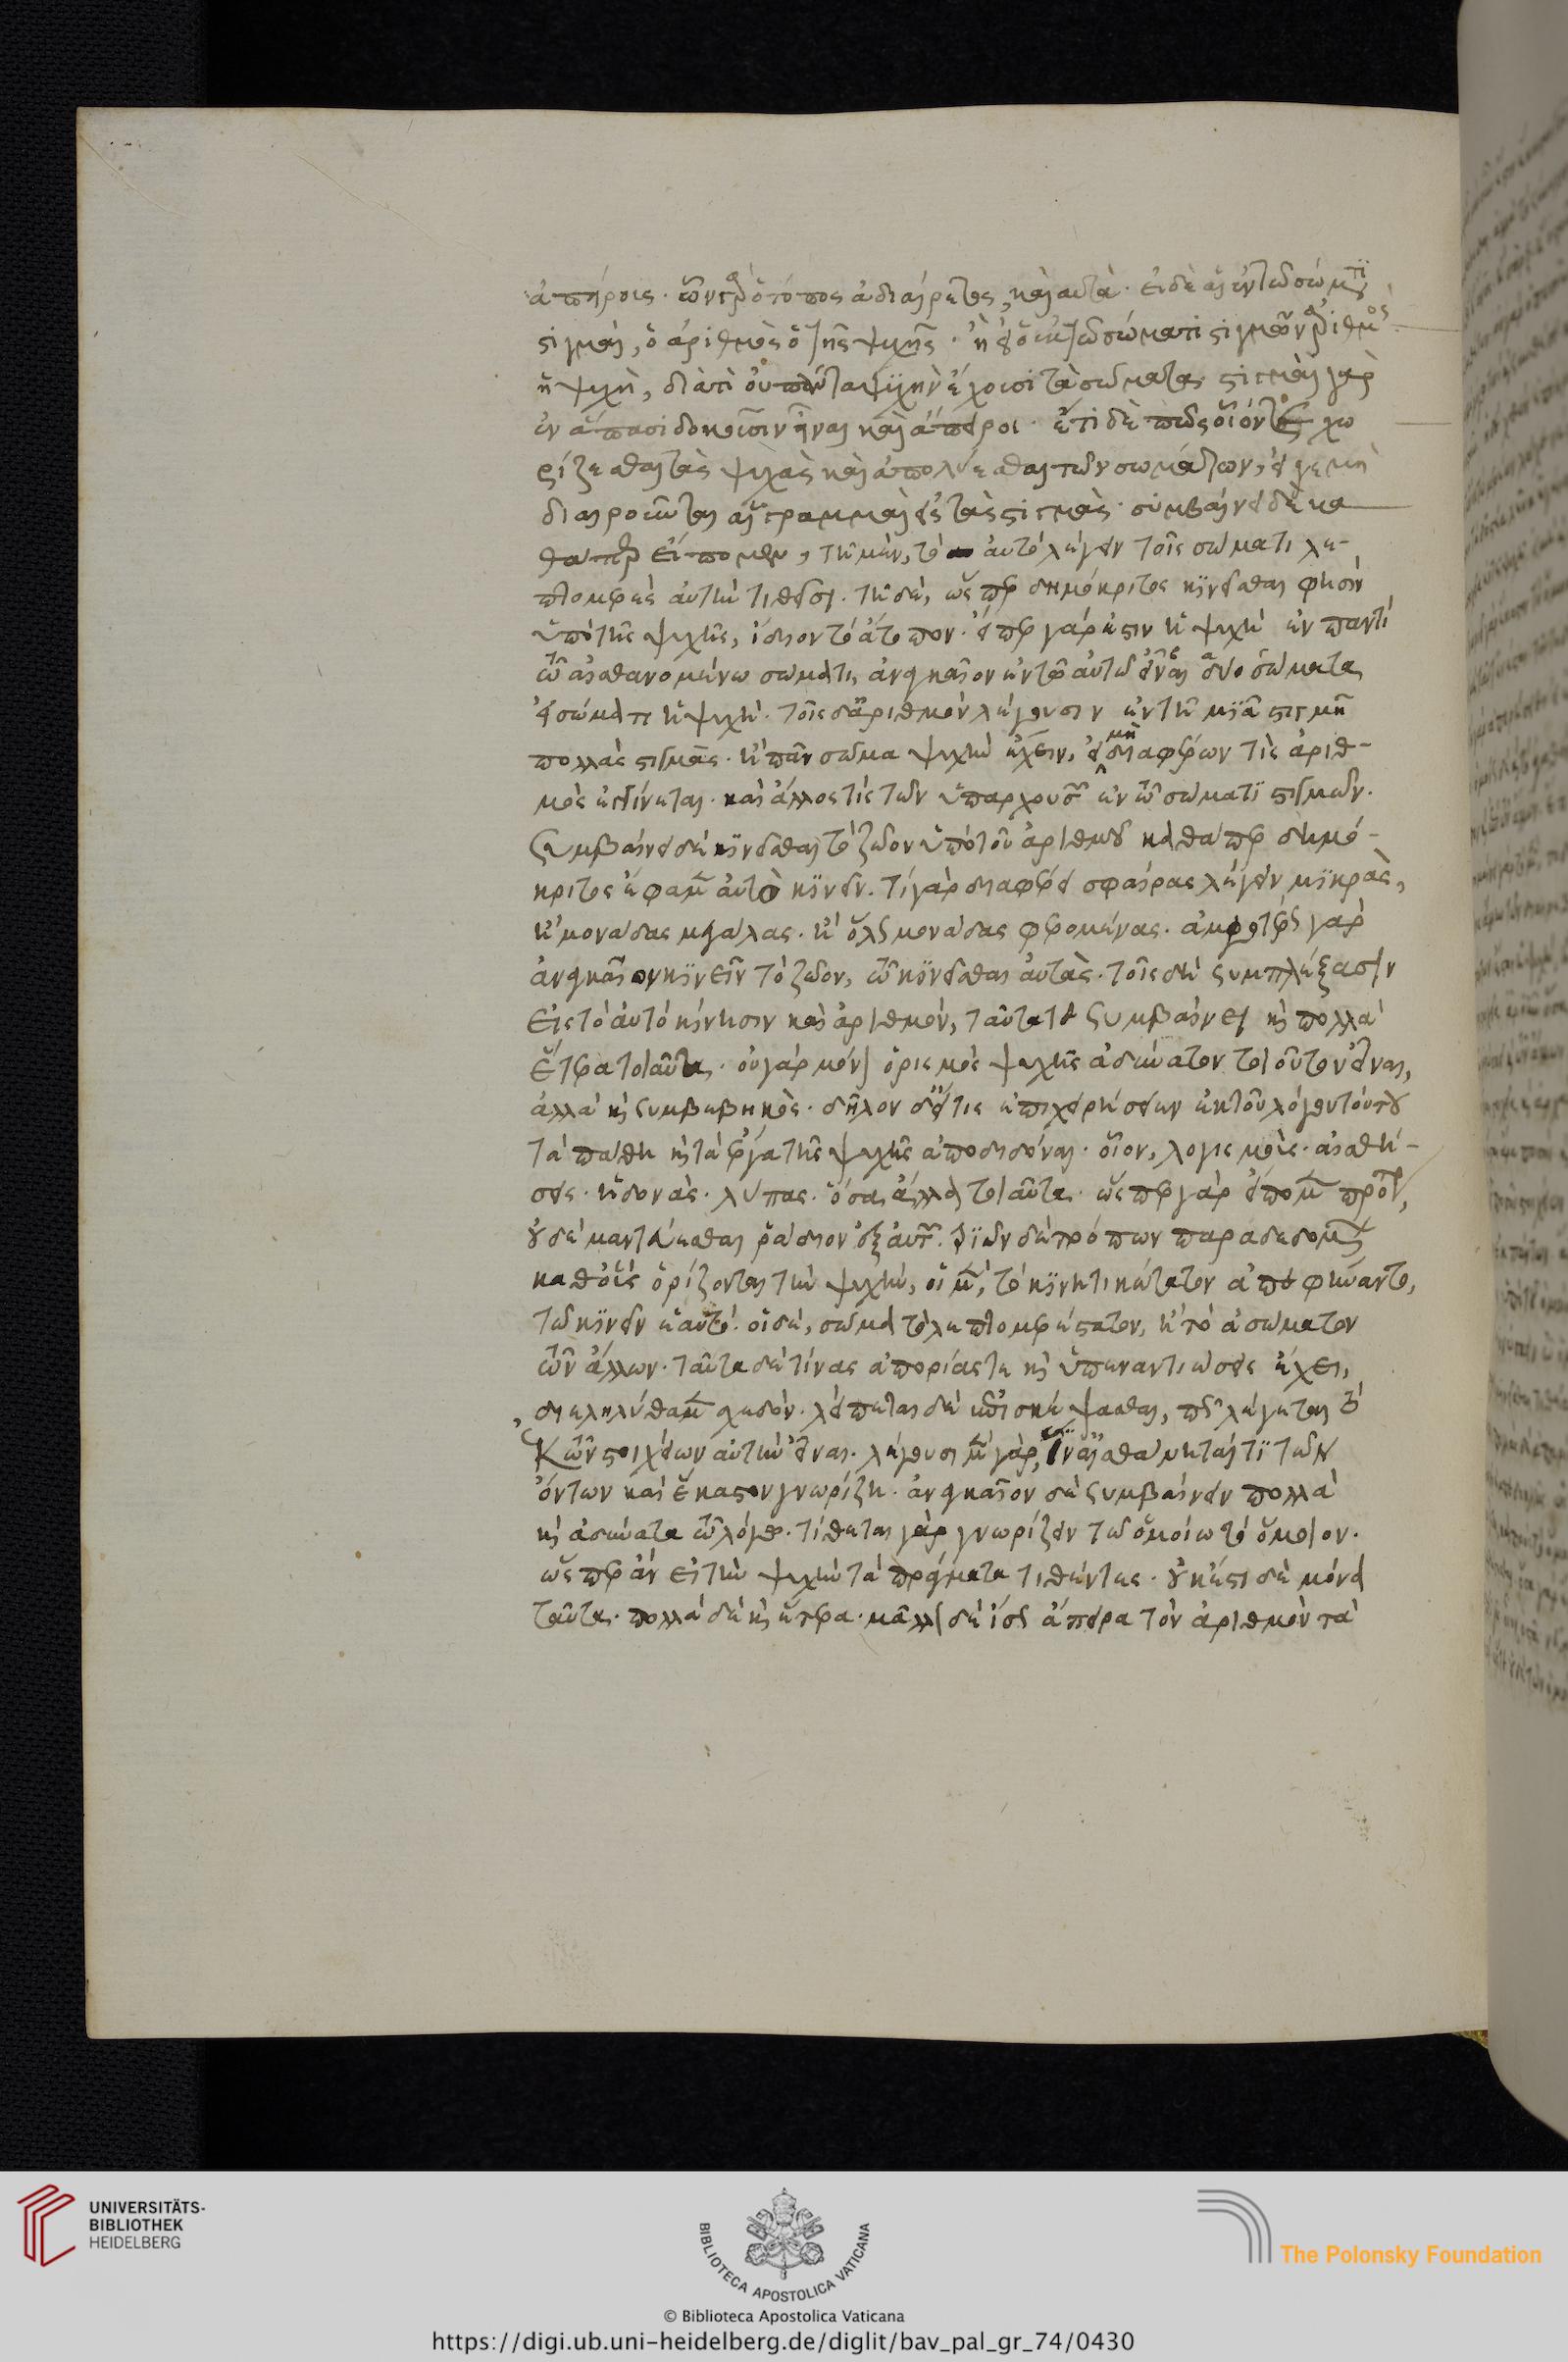 ἀπείροις. ὧν γὰρ ὁ τόπος ἀδιαίρετος, καὶ αὐτά. εἰ δὲ αἱ ἐν τῷ σώματι
στιγμαὶ, ὁ ἀριθμὸς ὁ τῆς ψυχῆς. ἢ εἰ ὁ ἐν τῷ σώματι στιγμῶν ἀριθμὸς
ἡ ψυχὴ, διὰ τί οὐ πάντα ψυχὴν ἔχουσι τὰ σώματα. στιγμαὶ γὰρ
ἐν ἅπασι δοκοῦσιν εἶναι καὶ ἄπειροι. ἔτι δὲ πῶς οἷόν τε χω
ρίζεσθαι τὰς ψυχὰς καὶ ἀπολύεσθαι τῶν σωμάτων, εἴ γε μὴ
διαιροῦνται αἱ γραμμαὶ εἰς τὰς στιγμάς. συμβαίνει δὲ κα
θάπερ εἴπομεν, τῇ μὲν, τὸ αὐτὸ λέγειν τοῖς σῶμα τι λε-
πτομερὲς αὐτὴν τιθεῖσι. τῇ δὲ, ὥσπερ δημόκριτος κινεῖσθαι φησὶν
ὑπὸ τῆς ψυχῆς, ἴδιον τὸ ἄτοπον. εἴπερ γάρ ἐστιν ἡ ψυχὴ ἐν παντὶ
τῷ αἰσθανομένω σώματι, ἀναγκαῖον ἐν τῷ αὐτῷ εἶναι δύο σώματα
εἰ σῶμά τι ἡ ψυχή. τοῖς δ' ἀριθμὸν λέγουσιν ἐν τῇ μιᾷ στιγμῇ
πολλὰς στιγμάς. ἢ πᾶν σῶμα ψυχὴν ἔχειν, εἰ μὴ διαφέρων τίς ἀριθ-
μὸς ἐγγίνεται. καὶ ἄλλος τίς τῶν ὑπαρχουσῶν ἐν τῷ σώματι στιγμῶν.
Συμβαίνει δὲ κινεῖσθαι τὸ ζῶον ὑπὸ τοῦ ἀριθμοῦ καθάπερ δημό-
κριτος ἔφαμεν αὐτὸ κινεῖν. τί γὰρ διαφέρει σφαίρας λέγειν μικρὰς,
ἢ μονάδας μεγάλας. ἢ ὅλως μονάδας φερομένας. ἀμφοτέρως γὰρ
ἀναγκαῖον κινεῖν τὸ ζῶον, τῷ κινεῖσθαι αὐτάς. τοῖς δὴ συμπλέξασιν
εἰς τὸ αὐτὸ κίνησιν καὶ ἀριθμὸν, ταῦτά τε συμβαίνει καὶ πολλὰ
ἕτερα τοιαῦτα. οὐ γὰρ μόνον ὁρισμὸς ψυχῆς ἀδύνατον τοιοῦτον εἶναι,
ἀλλὰ καὶ συμβεβηκός. δῆλον δ' εἴ τις ἐπιχειρήσειεν ἐκ τοῦ λόγου τούτου
τὰ πάθη καὶ τὰ ἔργα τῆς ψυχῆς ἀποδιδόναι. οἷον, λογισμοὺς. αἰσθή-
σεις. ἡδονάς. λύπας. ὅσα ἄλλα τοιαῦτα. ὥσπερ γὰρ εἴπομεν πρότερον,
οὐδὲ μαντεύσασθαι ῥάδιον ἐξ αὐτῶν. τριῶν δὲ τρόπων παραδεδομένων
καθ' οὓς ὁρίζονται τὴν ψυχὴν, οἱ μὲν, τὸ κινητικώτατον ἀπεφήναντο,
τῷ κινεῖν ἑαυτό. οἱ δὲ, σῶμα τὸ λεπτομερέστατον, ἢ τὸ ἀσώματον
τῶν ἄλλων. ταῦτα δὲ τίνας ἀπορίας τε καὶ ὑπεναντιώσεις ἔχει,
διεληλύθαμεν σχεδόν. λείπεται δὲ ἐπισκέψασθαι, πῶς λέγεται τὸ
ἐκ τῶν στοιχείων αὐτὴν εἶναι. λέγουσι μὲν γὰρ, ἵν' αἰσθάνηταί τι τῶν
ὄντων καὶ ἕκαστον γνωρίζη. ἀναγκαῖον δὲ συμβαίνειν πολλὰ
καὶ ἀδύνατα τῷ λόγῳ. τίθεται γὰρ γνωρίζειν τῷ ὁμοίω τὸ ὅμοιον.
ὥσπερ ἂν εἰ τὴν ψυχὴν τὰ πράγματα τιθέντες. οὐκ ἔστι δὲ μόνα
ταῦτα. πολλὰ δὲ καὶ ἕτερα. μᾶλλον δὲ ἴσως ἄπειρα τὸν ἀριθμὸν τὰ
UNIVERSITÄTS-
BIBLIOTHEK
HEIDELBERG
BIBLIOTECA APOSTOLICA VATICANA
The Polonsky Foundation
© Biblioteca Apostolica Vaticana
https://digi.ub.uni-heidelberg.de/diglit/bav_pal_gr_74/0430